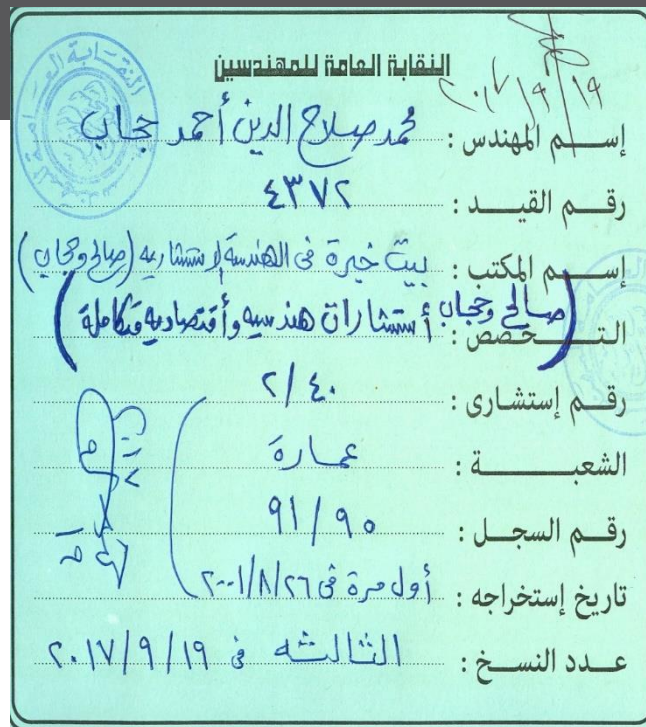 النقابة العامة للمهندسين
٢٠١٧/٩/١٩
إسم المهندس : محمد صلاح الدين أحمد حجاب
رقم القيد : ٤٣٧٢
إسم المكتب : بيت خبرة فى الهندسة الإستشاريه (صالح وحجاب)
التخصص : (صالح وحجاب أستشارات هندسيه وأقتصاديه متكاملة)
رقم إستشارى : ٢/٤٠
الشعبة : عمارة
رقم السجل : ٩١/٩٥
تاريخ إستخراجه : أول مرة فى ٢٠٠١/٨/٢٦
عدد النسخ : الثالثه فى ٢٠١٧/٩/١٩